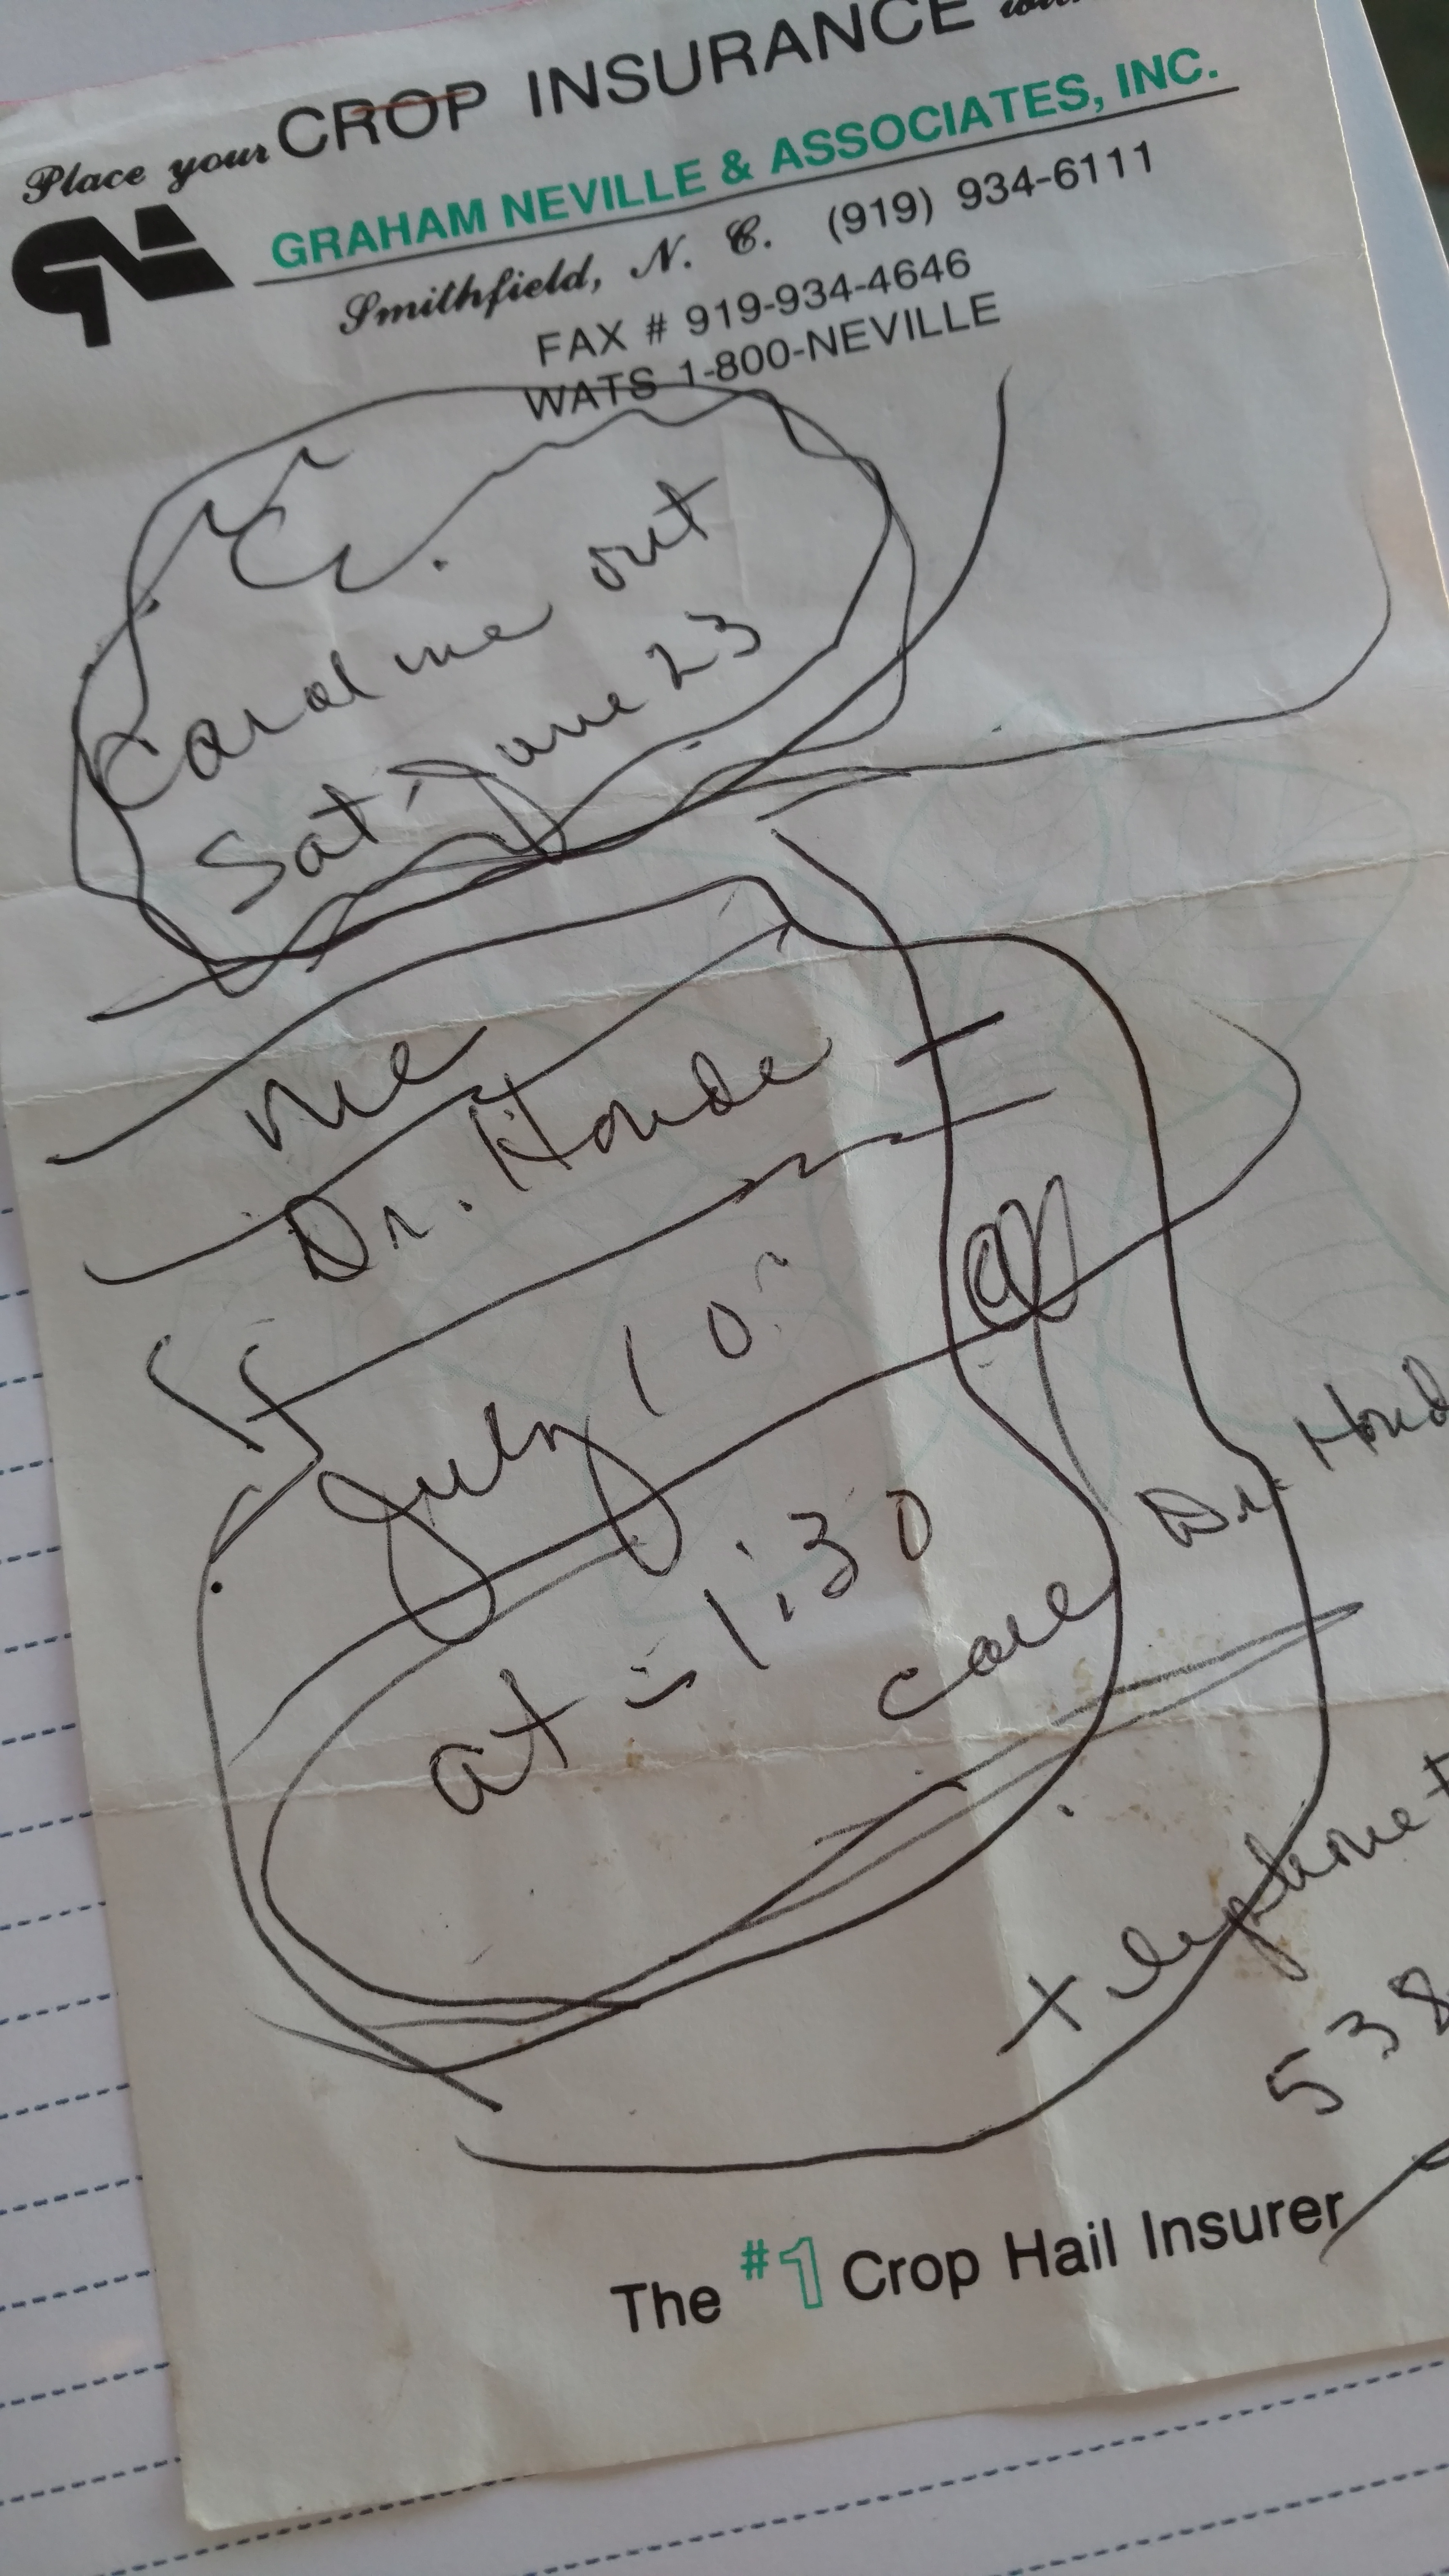 Place your CROP INSURANCE with
GRAHAM NEVILLE & ASSOCIATES, INC.
Smithfield, N. C. (919) 934-6111
FAX # 919-934-4646
WATS 1-800-NEVILLE
out
Sat, June 23
me
Dr. Honde
July 10
at - 1:30
Dr. Hond
call
telephone
538
The #1 Crop Hail Insurer